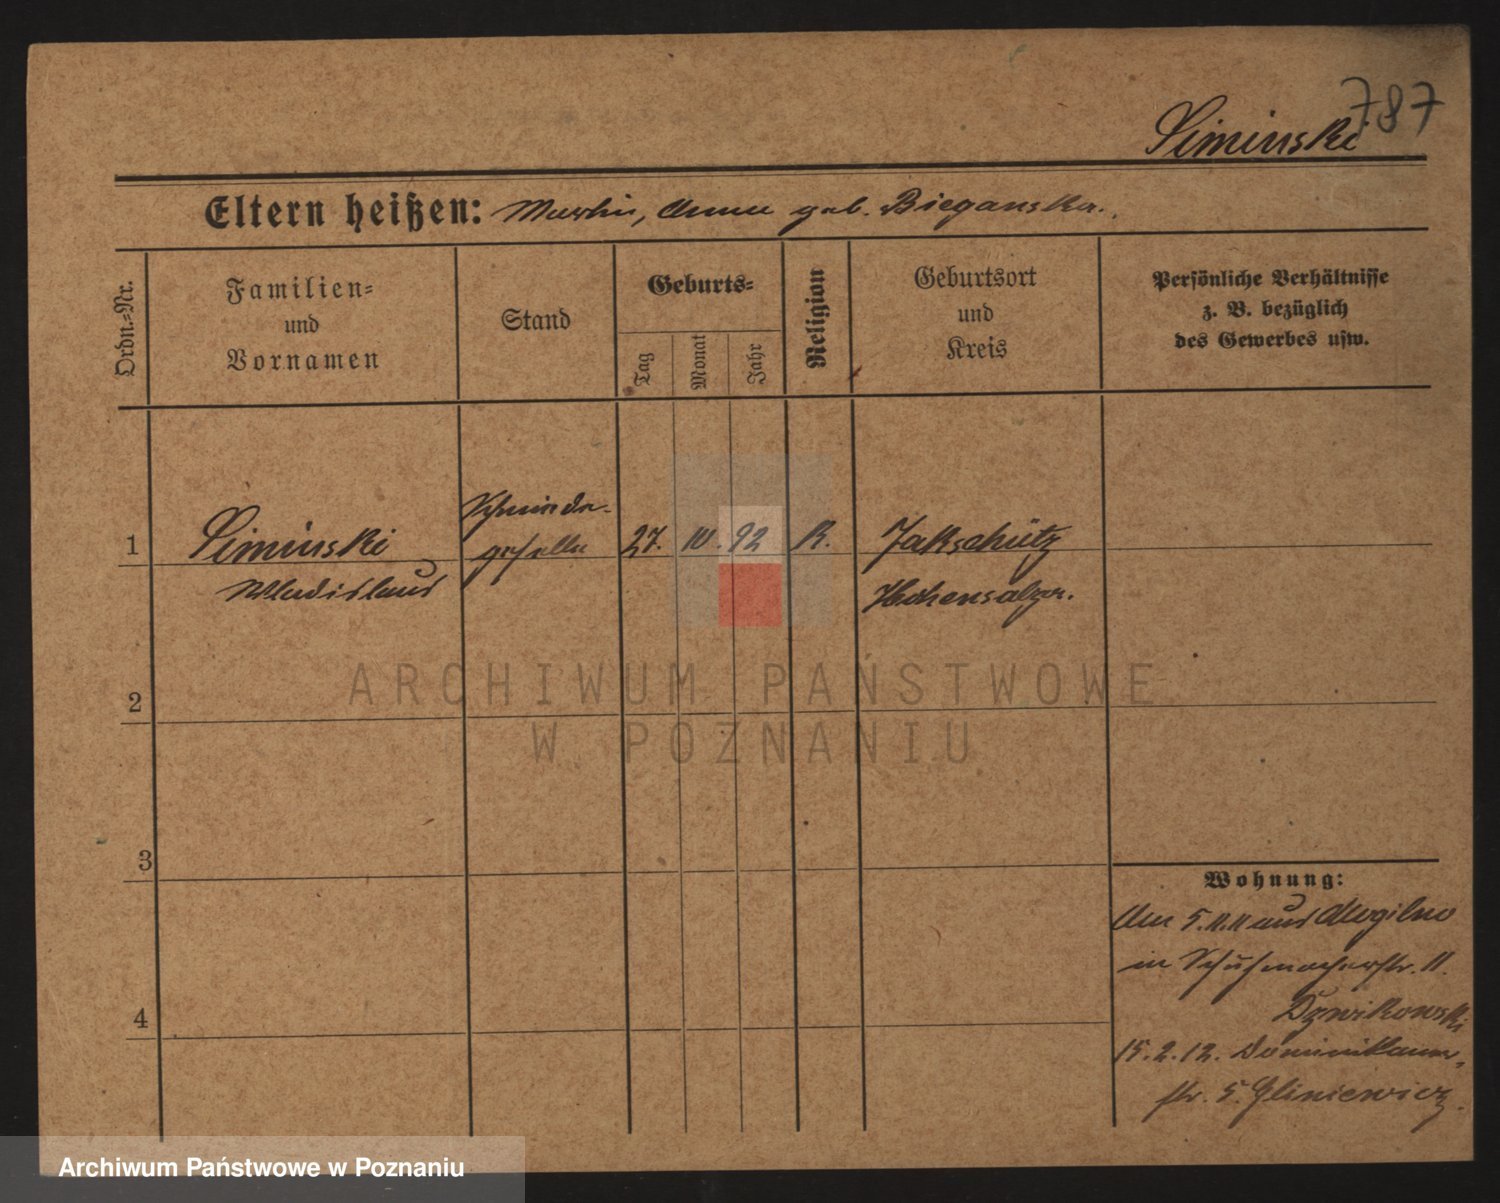 787
Siminski
Eltern heißen: Martin, Anna geb. Bieganska.
Ordn.=Nr.
Familien=
und
Vornamen
Stand
Geburts=
Tag
Monat
Jahr
Religion
Geburtsort
und
Kreis
Persönliche Verhältnisse
z. B. bezüglich
des Gewerbes usw.
1
Siminski
Wladislaus
Schneider-
geselle
27.
IV.
92
K.
Jakschütz
Hohensalza.
2
3
4
Wohnung:
Am 5.11.11 aus Mogilno
in Schuhmacherstr. 11.
15.2.12. Dominikaner-
str. 5. Gliniewicz.
ARCHIWUM PAŃSTWOWE
W POZNANIU
Archiwum Państwowe w Poznaniu